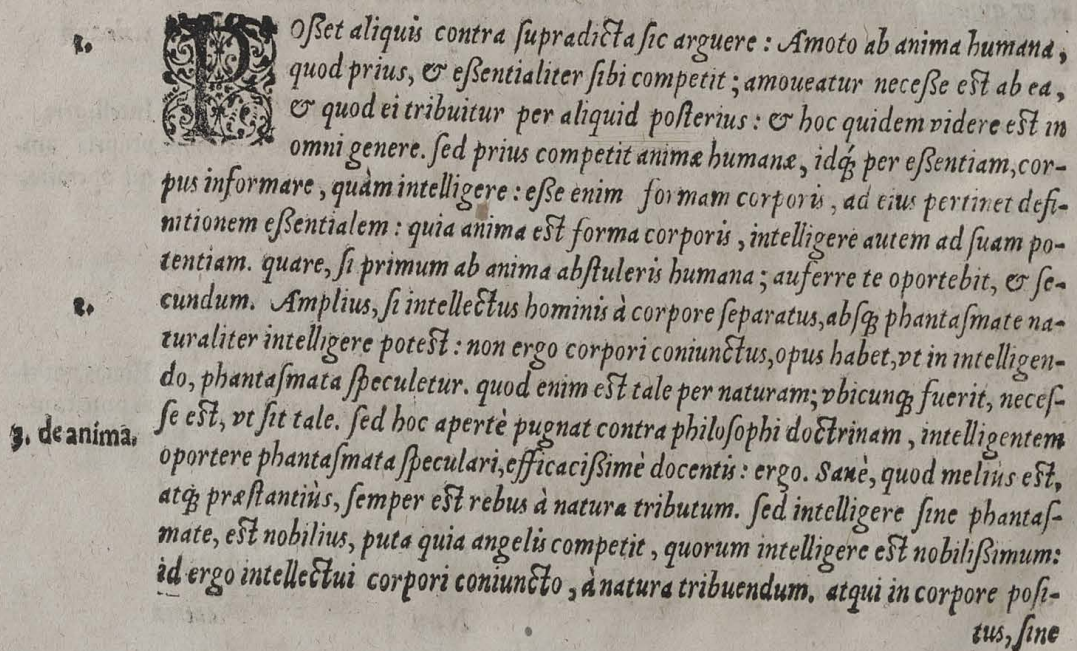 1.
POſſet aliquis contra ſupradicta ſic arguere : Amoto ab anima humana,
quod prius, & eſſentialiter ſibi competit ; amoueatur neceſſe eſt ab ea,
& quod ei tribuitur per aliquid poſterius : & hoc quidem videre eſt in
omni genere. ſed prius competit animæ humanæ, idq́ꝫ per eſſentiam, cor-
pus informare, quàm intelligere : eſſe enim formam corporis, ad eius pertinet defi-
nitionem eſſentialem : quia anima eſt forma corporis, intelligere autem ad ſuam po-
tentiam. quare, ſi primum ab anima abſtuleris humana ; auferre te oportebit, & ſe-
2.
cundum. Amplius, ſi intellectus hominis à corpore ſeparatus, abſqꝫ phantaſmate na-
turaliter intelligere poteſt : non ergo corpori coniunctus, opus habet, vt in intelligen-
do, phantaſmata ſpeculetur. quod enim eſt tale per naturam; vbicunqꝫ fuerit, neceſ-
ſe eſt, vt ſit tale. ſed hoc apertè pugnat contra philoſophi doctrinam, intelligentem
3. de anima.
oportere phantaſmata ſpeculari, efficaciſſimè docentis : ergo. Sanè, quod melius eſt,
atqꝫ præſtantiùs, ſemper eſt rebus à natura tributum. ſed intelligere ſine phantaſ-
mate, eſt nobilius, puta quia angelis competit, quorum intelligere eſt nobiliſſimum:
id ergo intellectui corpori coniuncto, à natura tribuendum. atqui in corpore poſi-
tus, ſine